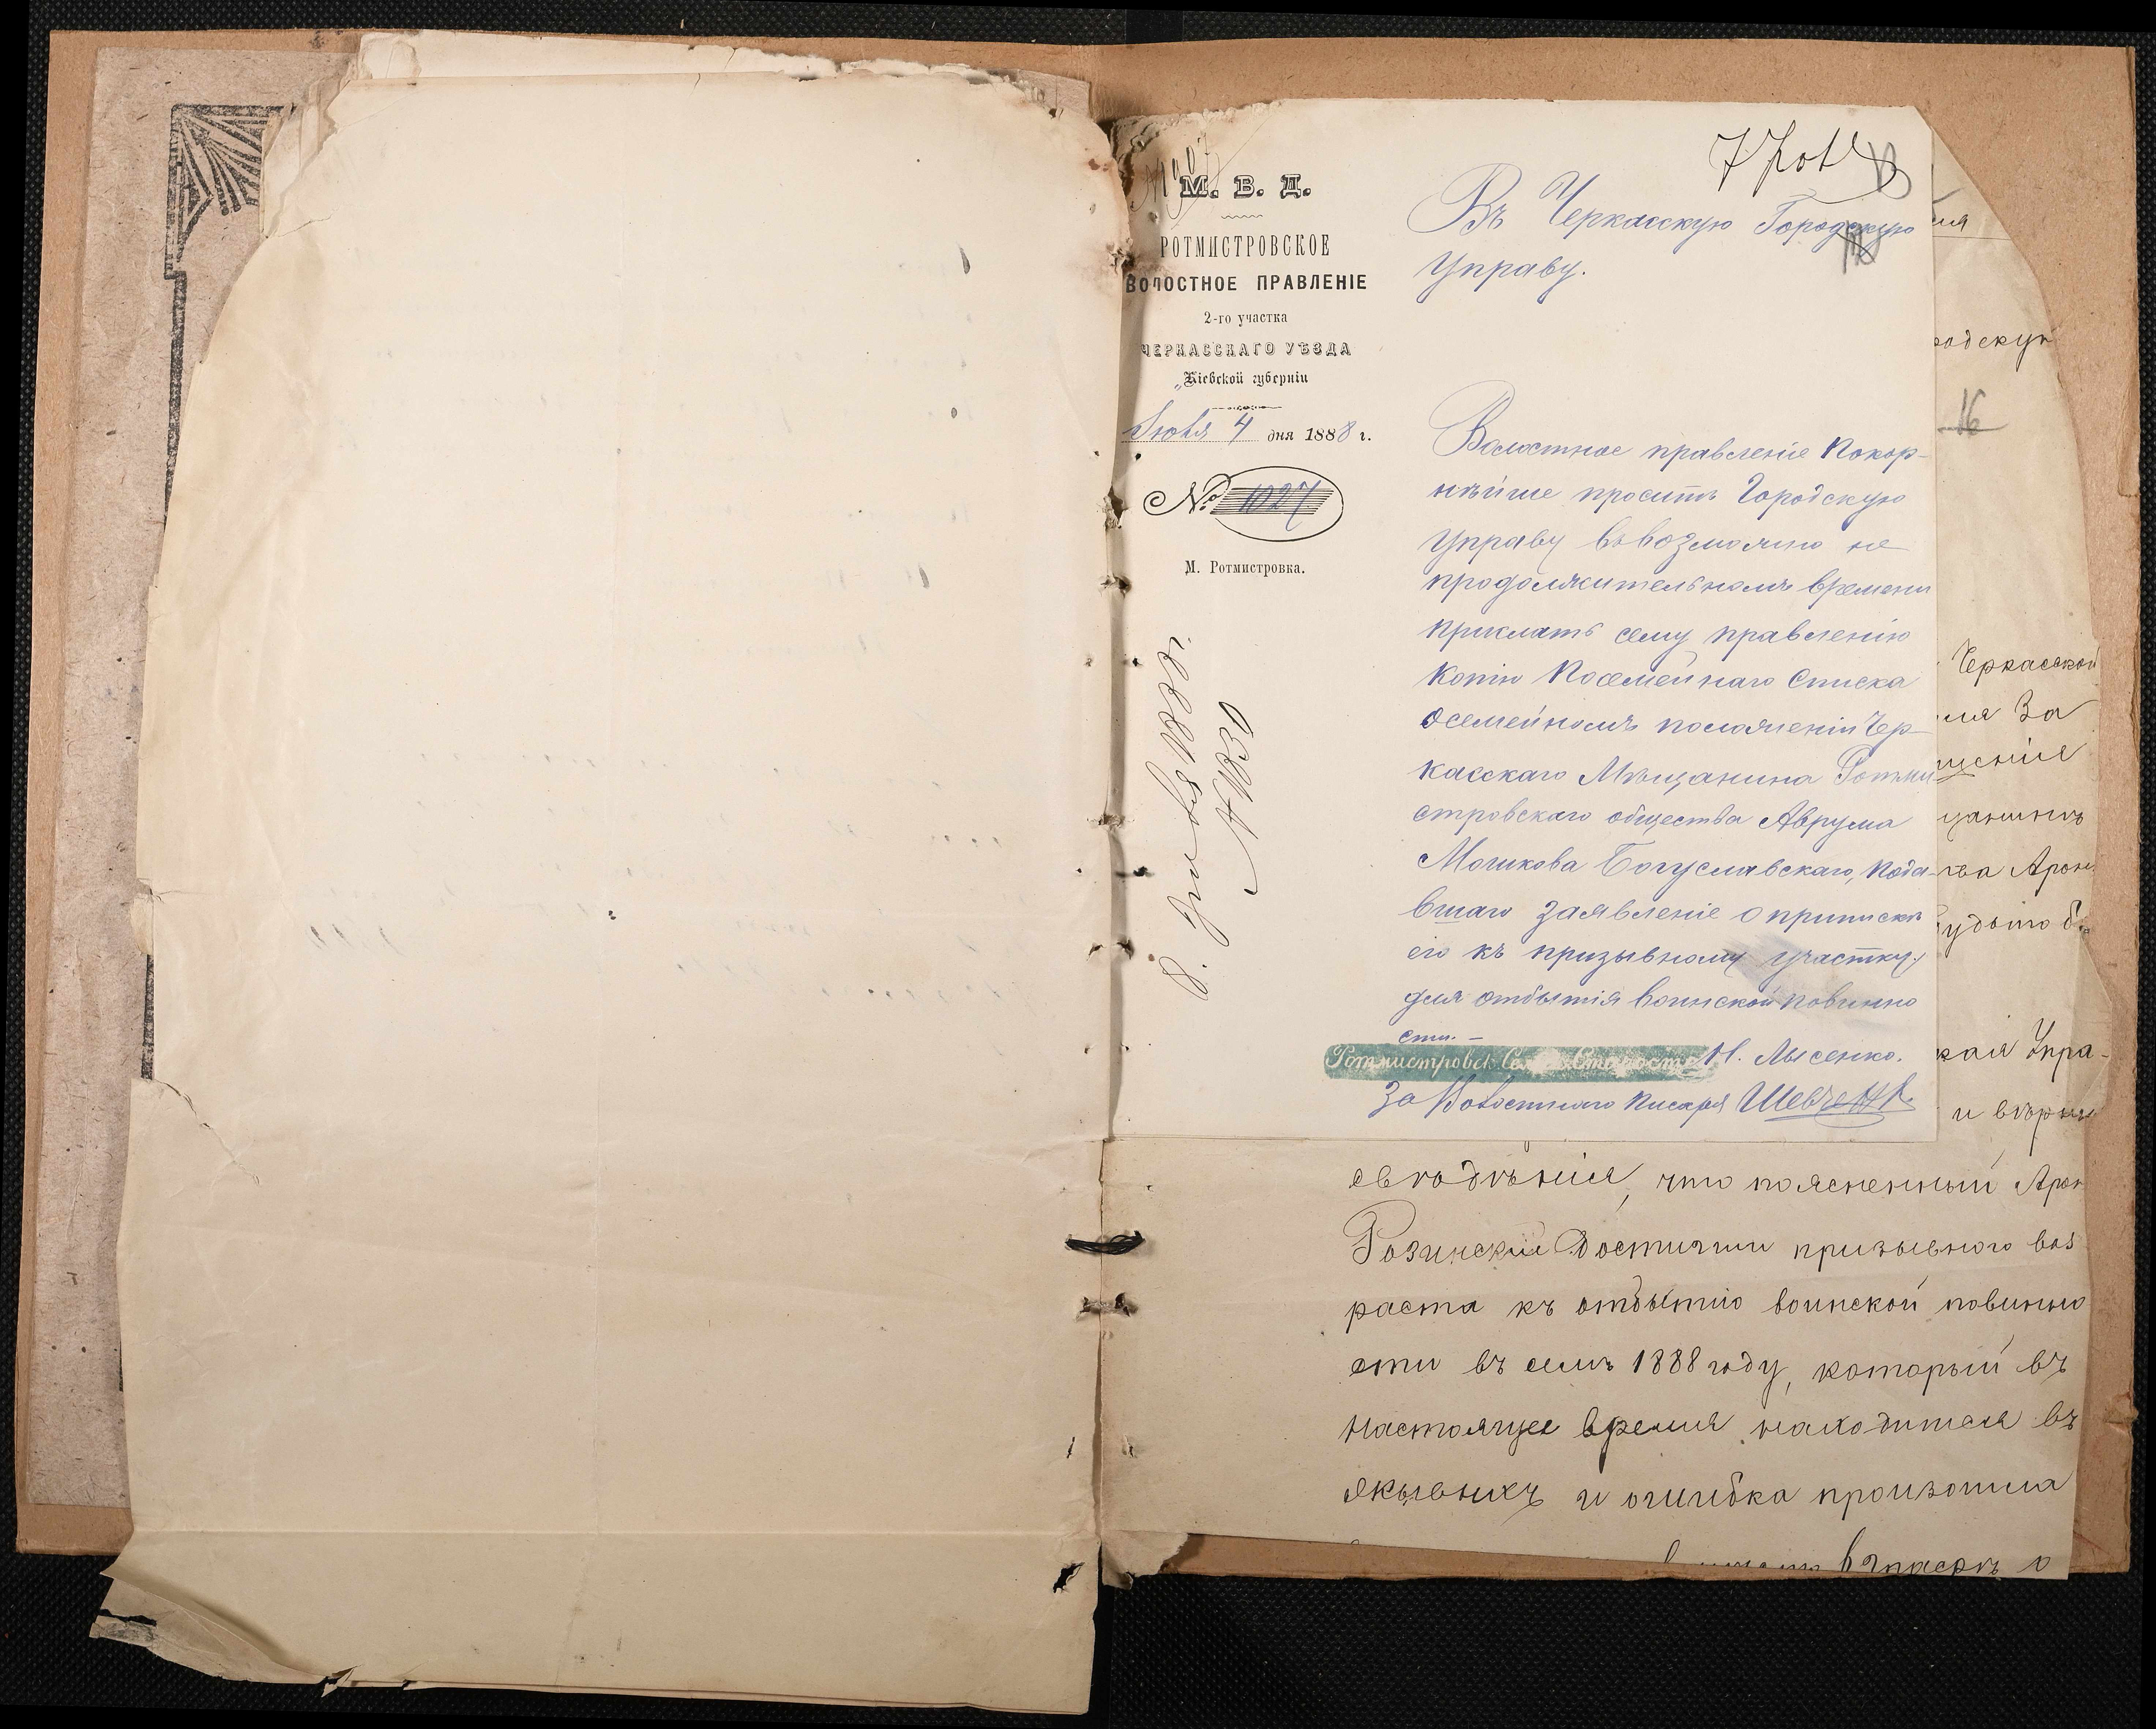 М. В. Д.
РОТМИСТРОВСКОЕ
ВОЛОСТНОЕ ПРАВЛЕНІЕ
2-го участка
ЧЕРКАССКАГО УѢЗДА
Кіевской губерніи
4 дня 1888 г.
№ 1027
М. Ротмистровка.
№ 830
Въ Черкасскую Городскую
Управу.
Волостное правленіе покор-
нѣйше проситъ Городскую
Управу въ возможно не
продолжительномъ времени
прислать сему правленію
копію посемейнаго списка
о семейномъ положеніи Чер-
касскаго Мѣщанина Ротми
стровскаго общества Аврума
Мошкова Богуславскаго, пода-
вшаго заявленіе о припискѣ
его къ призывному участку
для отбытія воинской повинно
сти. –
Ротмистровск. Се Староста Н. Лысенко.
За Волостного писаря Шевченко
одскую
16
Черкасской
за
щанинъ
Арон
кая Упра-
и вѣрныя
свѣдѣнія, что поясненный Арон
Розинскій достигши призывного воз
раста къ отбытію воинской повинно
сти въ семъ 1888 году, который въ
настоящее время находится въ
и ошибка произошла